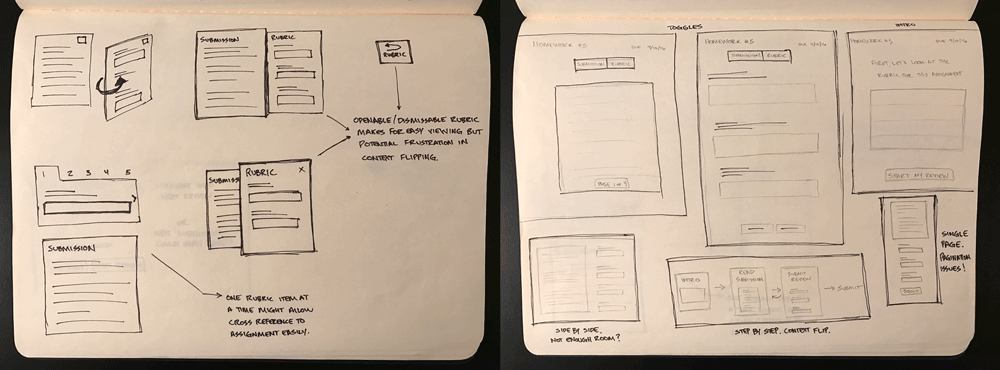 SUBMISSION
RUBRIC
RUBRIC
OPENABLE/DISMISSABLE RUBRIC
MAKES FOR EASY VIEWING BUT
POTENTIAL FRUSTRATION IN
CONTEXT FLIPPING.
1 2 3 4 5
SUBMISS
RUBRIC X
SUBMISSION
ONE RUBRIC ITEM AT
A TIME MIGHT ALLOW
CROSS REFERENCE TO
ASSIGNMENT EASILY.
TOGGLES
INTRO
HOMEWORK #5
SUBMISSION RUBRIC
HOMEWORK #5
SUBMISSION RUBRIC
HOMEWORK #5
FIRST LET'S LOOK AT THE
RUBRIC FOR THIS ASSIGNMENT
START MY REVIEW
SINGLE
PAGE.
PAGINATION
ISSUES!
INTRO
READ
SUBMISSION
SUBMIT
REVIEW
SUBMIT
SIDE BY SIDE.
NOT ENOUGH ROOM?
STEP BY STEP. CONTEXT FLIP.